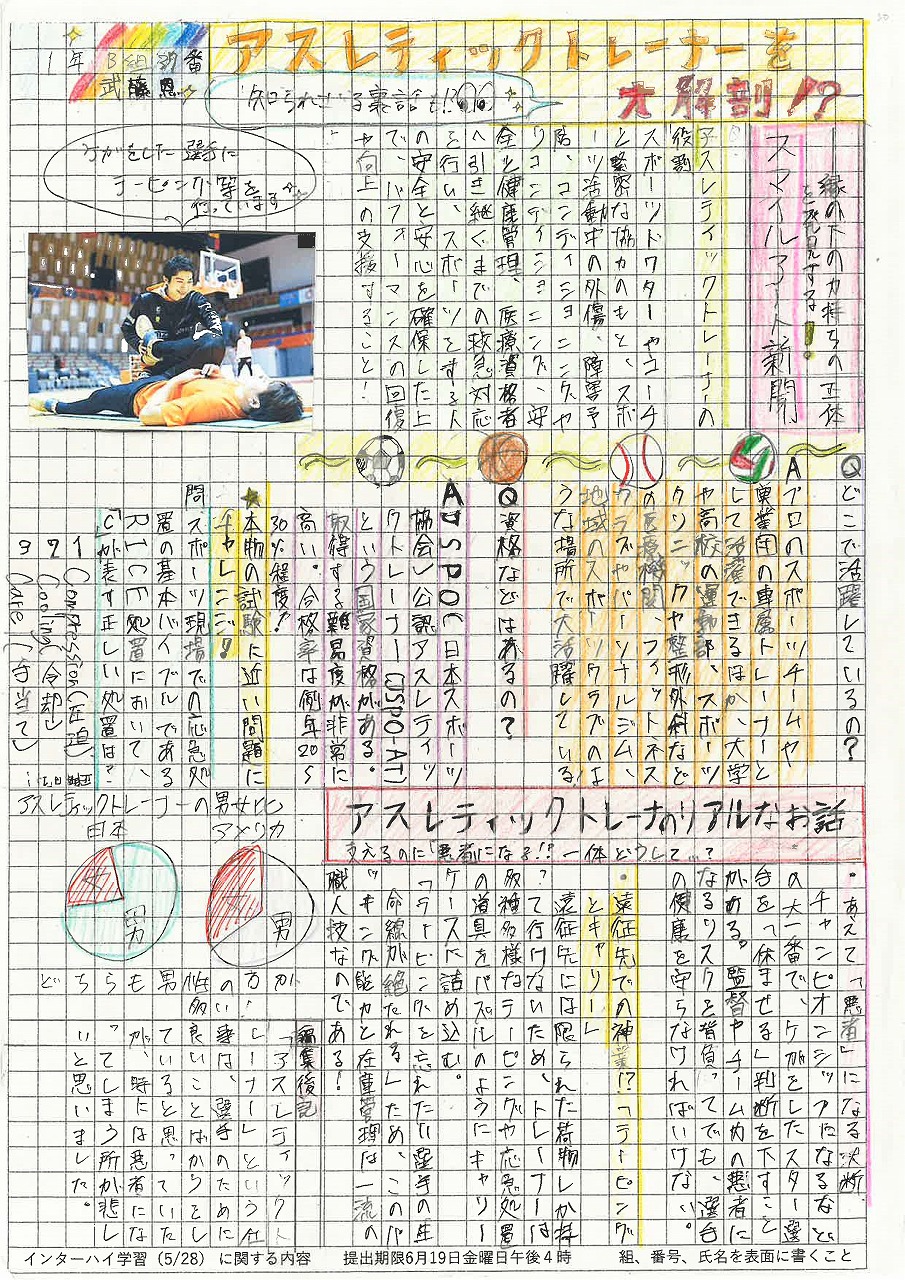 アスレティックトレーナーを
大解剖!?
知られざる裏話も!?
1年
武藤恩
縁の下の力持ちの正体
を発見する!
スマイルアート新聞
アスレティックトレーナーの
役割
スポーツドクターやコーチ
と緊密な協力のもと、スポ
ーツ活動中の外傷、障害予
防、コンディショニングや
リコンディショニング、安
全と健康管理、医療資格者
へ引き継ぐまでの救急対応
を行い、スポーツをする人
の安全と安心を確保した上
で、パフォーマンスの回復
や向上の支援すること!
けがをした選手に
テーピング等を
行っています
Qどこで活躍しているの?
Aプロのスポーツチームや
実業団の専属トレーナーと
して活躍できるほか、大学
や高校の運動部、スポーツ
クリニックや整形外科など
の医療機関、フィットネス
クラブやパーソナルジム、
地域のスポーツクラブのよ
うな場所で大活躍している!
Q資格などはあるの?
AJSPO(日本スポーツ
協会)公認アスレティッ
クトレーナー(JSPO-AT)
という国家資格がある。
取得する難易度が非常に
高い。合格率は例年20~
30%程度!
★本物の試験に近い問題に
チャレンジ!
問スポーツ現場での応急処
置の基本バイブルである
RICE処置において、
「C」が表す正しい処置は?
1 Compression(圧迫)
2 Cooling(冷却)
3 Care(手当て)
アスレティックトレーナーの男女比
日本
アメリカ
女
男
男
どちらも男性の方が
多い!
アスレティックトレーナーのリアルなお話
支えるのに「悪者になる!?一体どうして…?
・あえて「悪者」になる決断
チャンピオンシップなど
の大一番で、ケガをしたスター選
台を「休ませる」判断を下すこと
がある。監督やチームの悪者に
なるリスクを背負ってでも、選台
の健康を守らなければいけない。
・遠征先での神業!?「テーピング
とキャリー」
遠征先には限られた荷物しか持
って行けないため、トレーナーは
多種多様なテーピングや応急処置
の道具をパズルのようにキャリー
ケースに詰め込む。
「テーピングを忘れたい選手の生
命線が絶たれる」ため、このパ
ッキング能力と在庫管理は一流の
職人技なのである!
編集後記
「アスレティックト
レーナー」という仕
事は、選手のために
良いことばかりをし
ていると思っていた
が、時には悪者にな
ってしまう所が悲し
いと思いました。
インターハイ学習(5/28)に関する内容 提出期限6月19日金曜日午後4時 組、番号、氏名を表面に書くこと